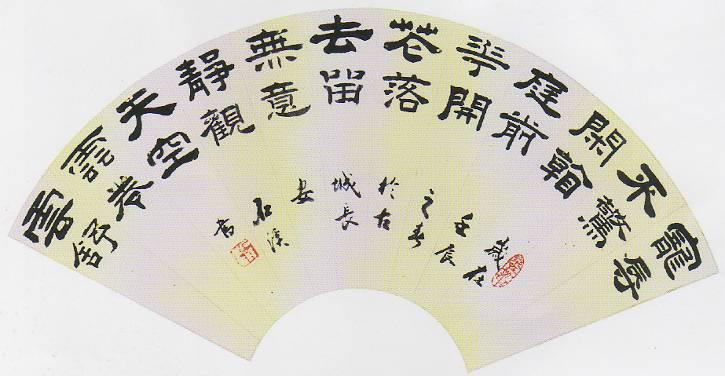 寵辱
不驚
閑看
庭前
花開
花落
去留
無意
靜觀
天空
雲卷
雲舒
歲在
壬辰
之春
於古
城長
安
石溪
書